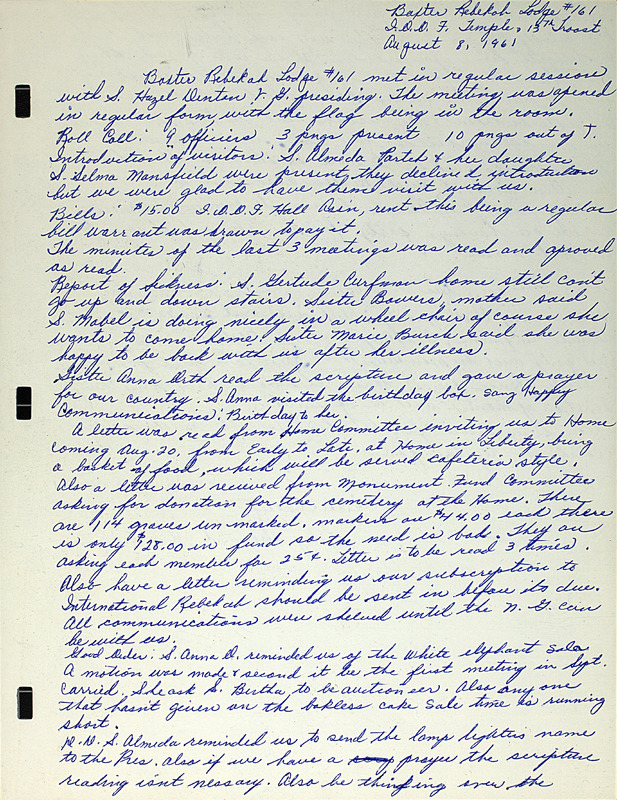 Baxter Rebekah Lodge #161
I.O.O.F. Temple, 13th Troost
August 8, 1961
Baxter Rebekah Lodge #161 met in regular session
with S. Hazel Denton V. G. presiding. The meeting was opened
in regular form with the flag being in the room.
Roll Call: 9 officers 3 pngs present 10 pngs out of T.
Introduction of visitors: S. Almeda Partch & her daughter
S. Selma Mansfield were present, they declined introduction
but we were glad to have them visit with us.
Bills: $15.00 I.O.O.F. Hall Assn, rent this being a regular
bill warrant was drawn to pay it.
The minutes of the last 3 meetings was read and aproved
as read.
Report of Sickness: S. Gertude Curfman home still can't
go up and down stairs. Sister Bowers, mother said
S. Mabel is doing nicely in a wheel chair of course she
wants to come home. Sister Marie Burch said she was
happy to be back with us after her illness.
Sister Anna Orth read the scripture and gave a prayer
for our country. S. Anna visited the birthday box. Sang Happy
Communications: Birthday to her.
A letter was read from Home Committee inviting us to Home
coming Aug. 20, from Early to Late, at Home in Liberty, bring
a basket of food, which will be served cafeteria style.
Also a letter was recived from Monument Fund Committee
asking for donation for the cemetery at the Home. There
are 114 graves un marked, markers are $44.00 each there
is only $128.00 in fund so the need is bad. They are
asking each member for 25¢. Letter is to be read 3 times.
Also have a letter reminding us our subscription to
International Rebekah should be sent in before its due.
All communications were shelved until the N. G. can
be with us.
Good Order: S. Anna O. reminded us of the White elephant Sale
A motion was made & second it be the first meeting in Sept.
Carried. She ask S. Bertha to be aucticneer. Also any one
that hasn't given on the bakless cake Sale time is running
short.
D. D. S. Almeda reminded us to send the lamp lighters name
to the Pres. also if we have a prayer the scripture
reading isnt nessary. Also be thinking over the